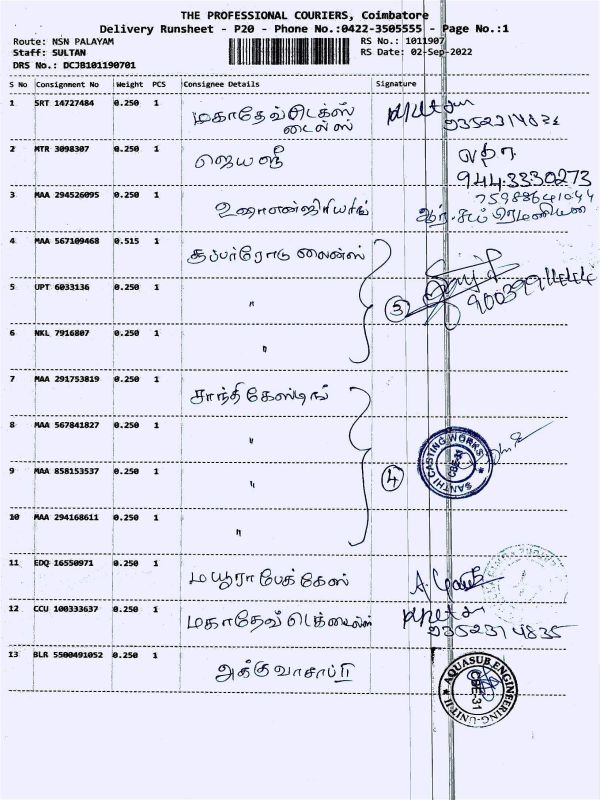 THE PROFESSIONAL COURIERS, Coimbatore
Delivery Runsheet - P20 - Phone No.:0422-3505555 - Page No.:1
Route: NSN PALAYAM
RS No.: 1011907
Staff: SULTAN
RS Date: 02-Sep-2022
DRS No.: DCJB101190701
S No Consignment No Weight PCS Consignee Details Signature
1 SRT 14727484 0.250 1 மகாதேவ் டெக்ஸ்
டைல்ஸ்
2 MTR 3098307 0.250 1 ஜெய ஸ்ரீ
944 3330273
3 MAA 294526095 0.250 1
75988641044
4 MAA 567109468 0.515 1 சூப்பர்ரோடு லைன்ஸ்
5 UPT 6033136 0.250 1 "
3
6 NKL 7916807 0.250 1 "
7 MAA 291753819 0.250 1 சாந்தி கேஸ்டிங்
8 MAA 567841827 0.250 1 "
SANTHI CASTING WORKS
9 MAA 858153537 0.250 1 "
4
10 MAA 294168611 0.250 1 "
11 EDQ 16550971 0.250 1 மயூரா பேக்கேஸ்
12 CCU 100333637 0.250 1 மகாதேவ் டெக்ஸ்டைல்ஸ்
9352314835
13 BLR 5500491052 0.250 1 அக்குவாசாப் II
AQUASUB ENGINEERING-UNIT-II
CBE-31